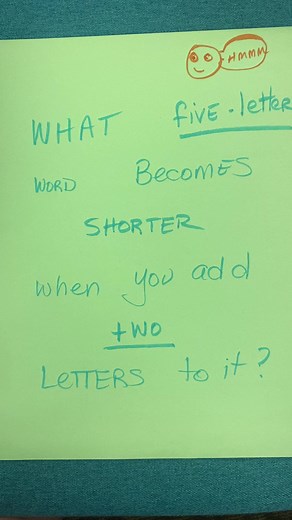 HMMM
WHAT five-letter
WORD BecomeS
SHORTER
when you add
two
LeTTERS to it?